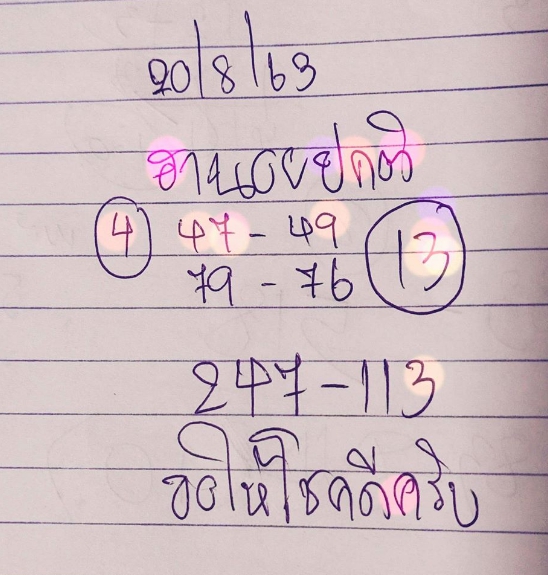 20/8/63
ฮานอยปกติ
4 47-49 13
79-76
247-113
ขอให้โชคดีครับ